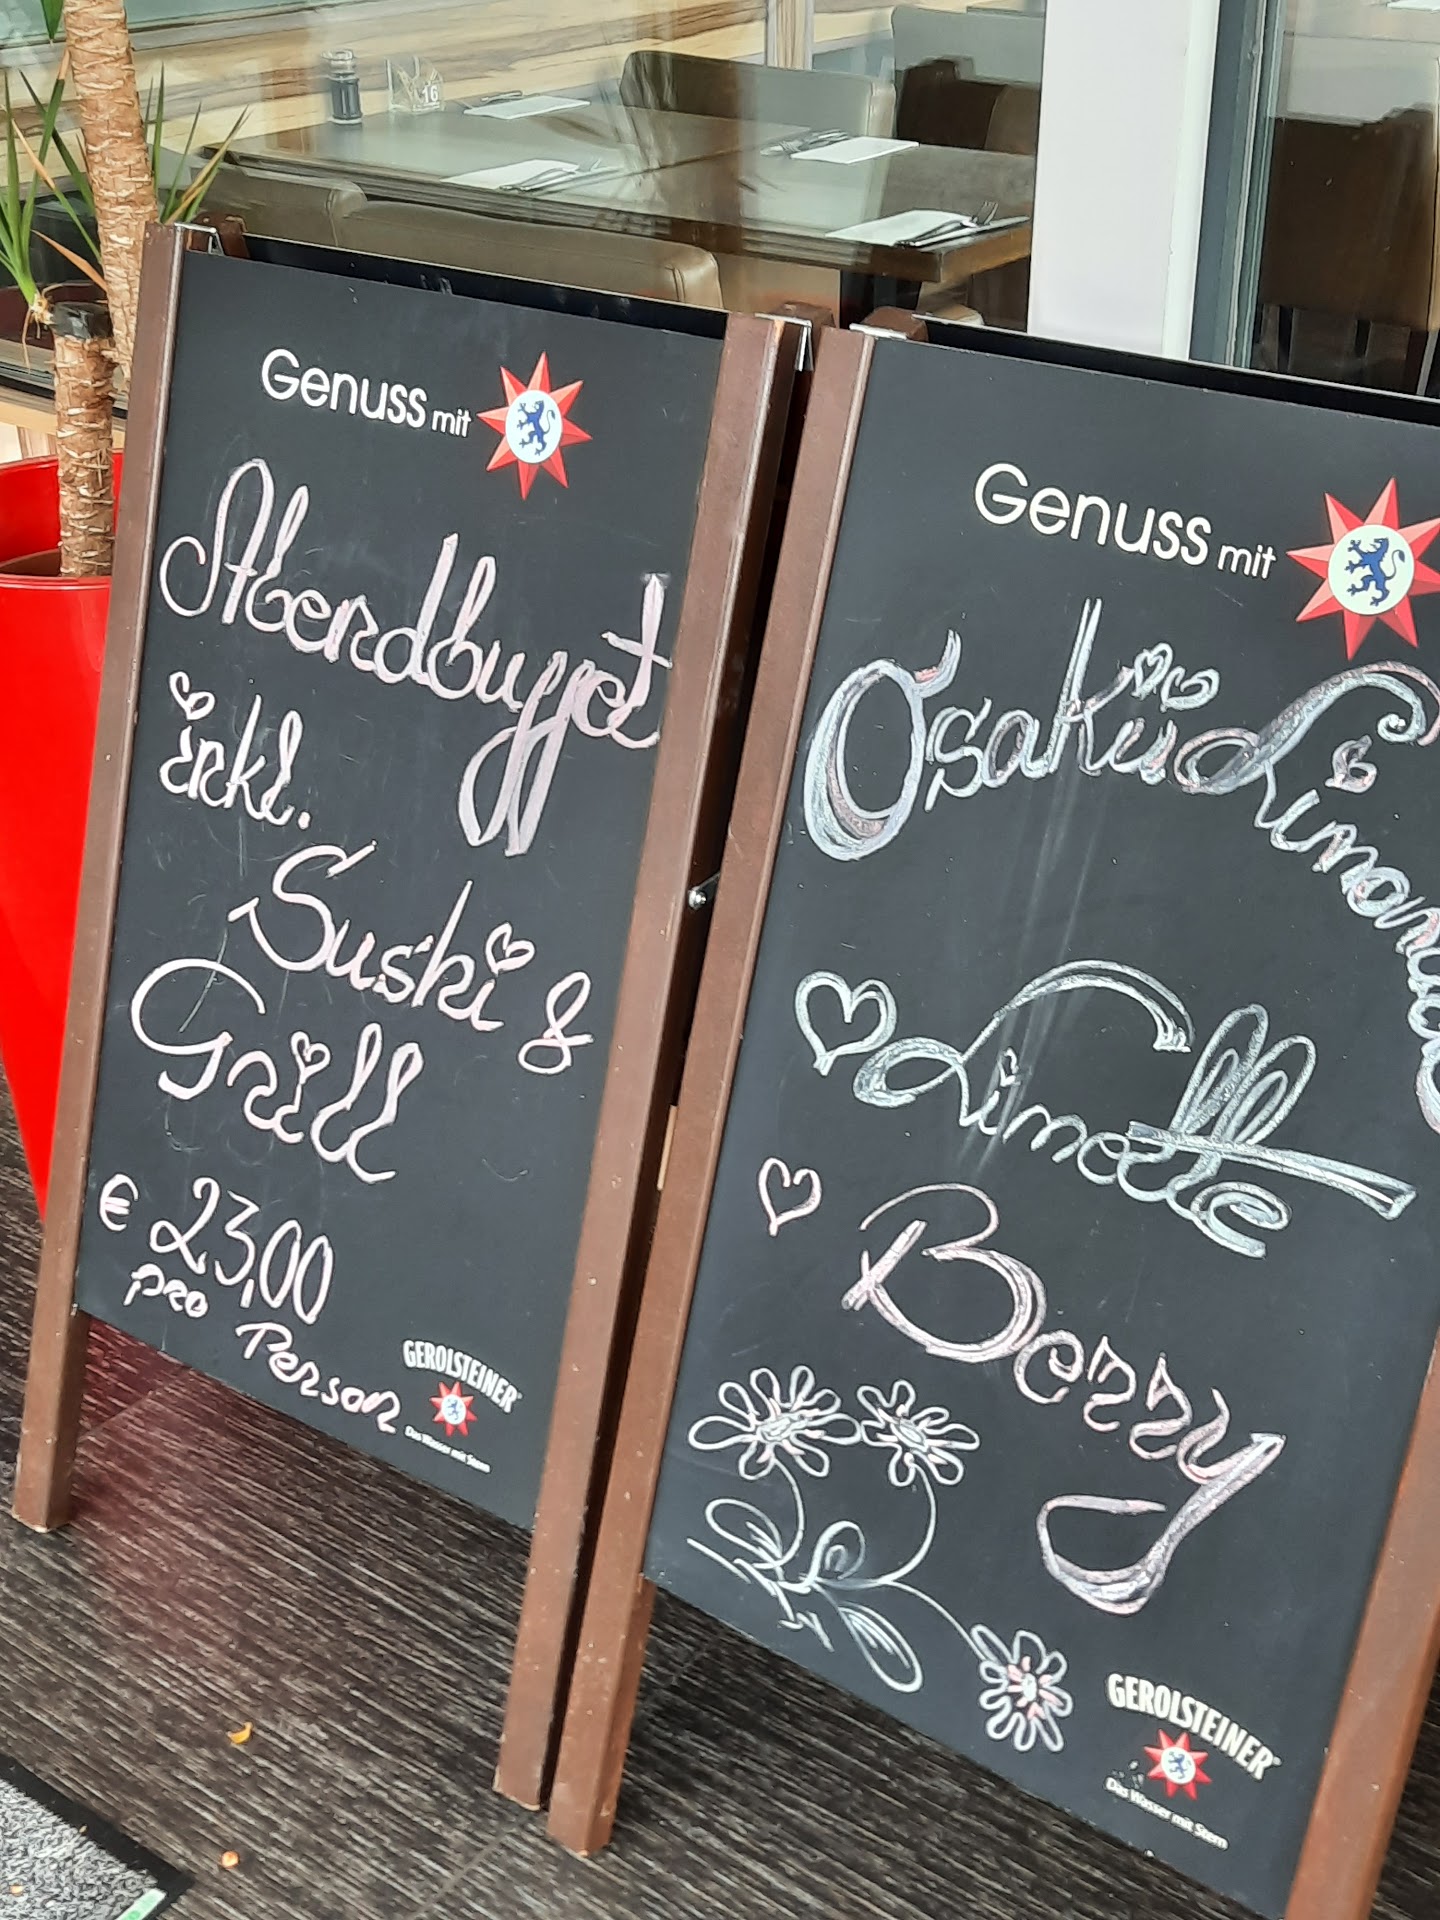 16
Genuss mit
Abendbuffet
inkl.
Sushi &
Grill
€ 23,00
pro Person
GEROLSTEINER
Das Wasser mit Stern
Genuss mit
Osaku Limonade
Limette
Berry
GEROLSTEINER
Das Wasser mit Stern